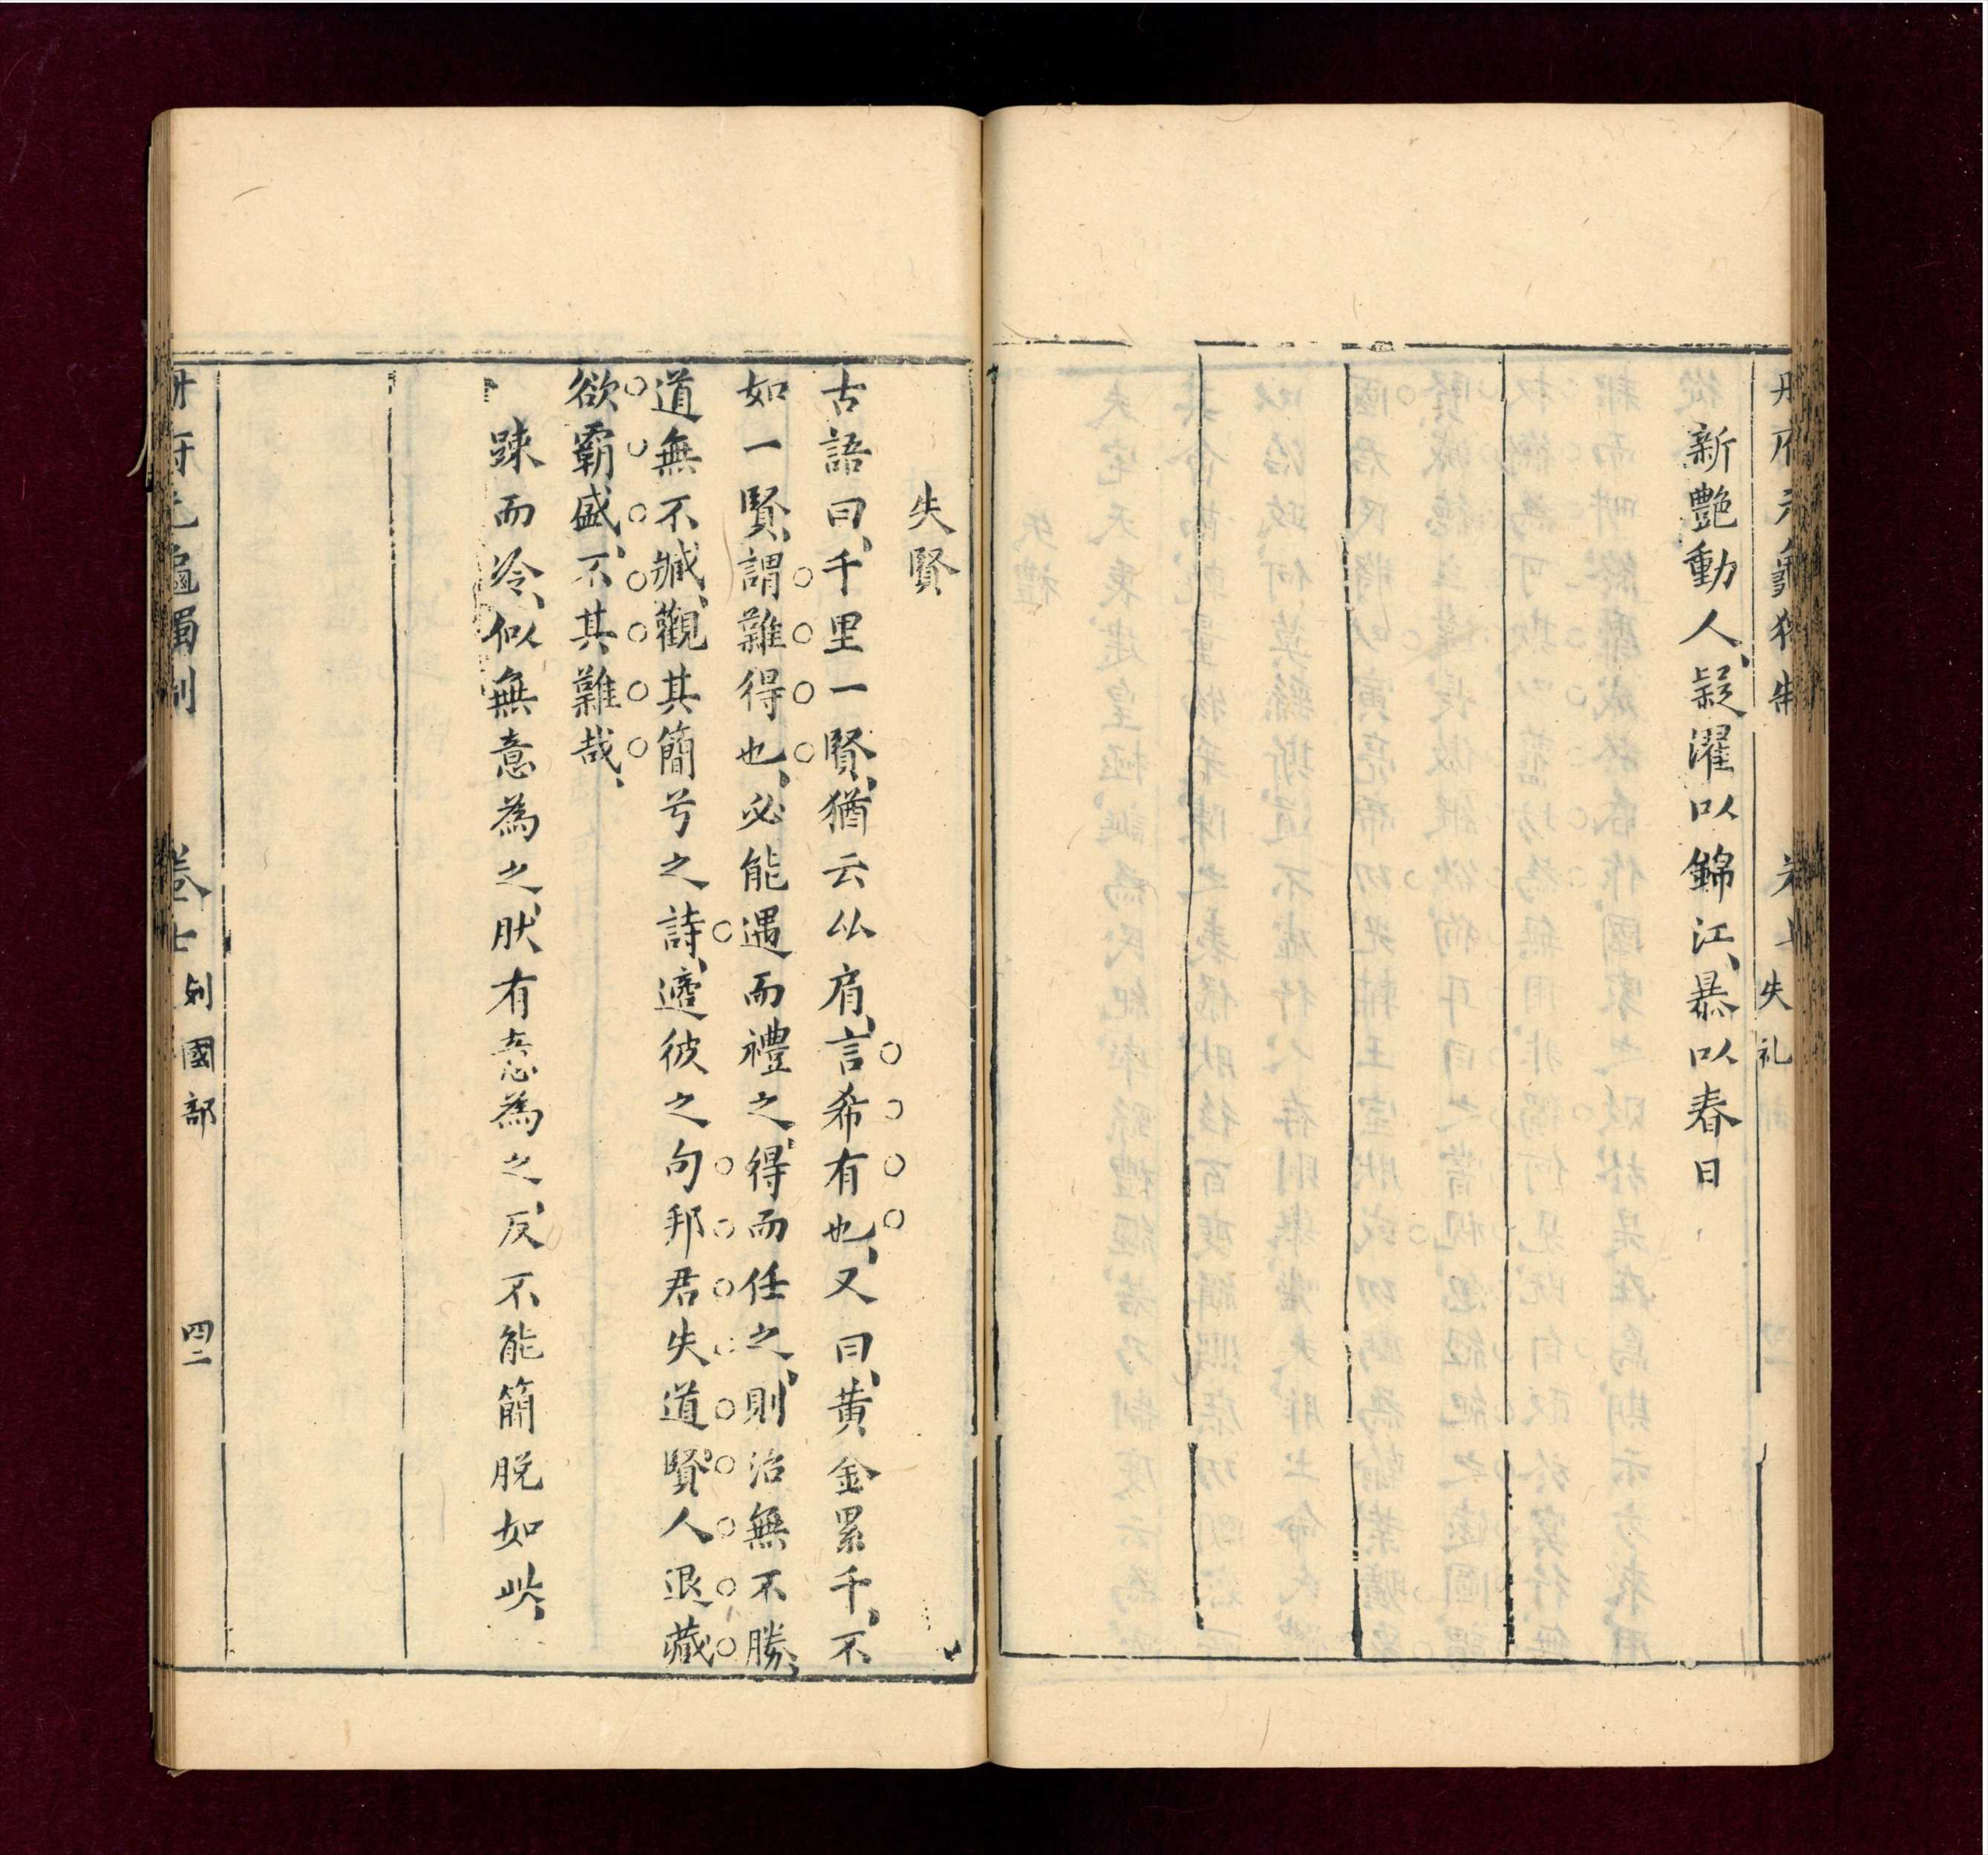 冊府元龜獨制　卷七　失礼
新艷動人、疑濯以錦江、暴以春日、
失賢
古語曰、千里一賢、猶云比肩、言希有也、又曰、黄金累千、不
如一賢、謂難得也、必能遇而禮之、得而任之、則治無不勝、
道無不臧、觀其簡兮之詩、薖邁彼之句邦君失道賢人退藏
欲霸盛、不其難哉、
踈而冷、似無意為之、肰有意為之、反不能簡脫如此、
冊府元龜獨制　卷七　列國部　四二